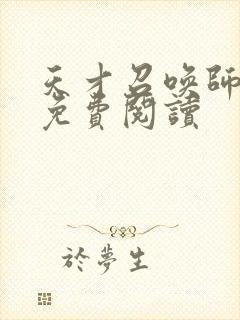 天才召喚師
免費閱讀
於夢生